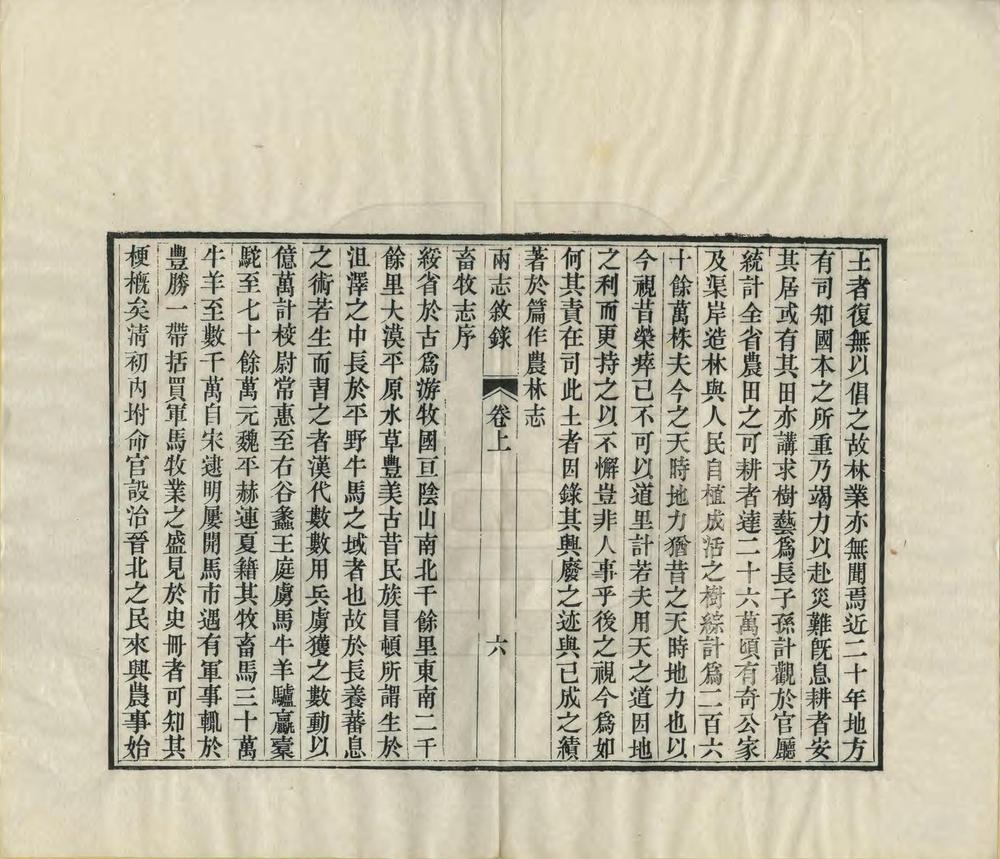 土者復無以倡之故林業亦無聞焉近二十年地方
有司知國本之所重乃竭力以赴災難旣息耕者安
其居或有其田亦講求樹藝爲長子孫計觀於官廳
統計全省農田之可耕者達二十六萬頃有奇公家
及渠岸造林與人民自植成活之樹綜計爲二百六
十餘萬株夫今之天時地力猶昔之天時地力也以
今視昔榮瘁已不可以道里計若夫用天之道因地
之利而更持之以不懈豈非人事乎後之視今爲如
何其責在司此土者因錄其興廢之迹與已成之績
著於篇作農林志
兩志敘錄 卷上 六
畜牧志序
綏省於古爲游牧國亘陰山南北千餘里東南二千
餘里大漠平原水草豐美古昔民族冒頓所謂生於
沮澤之中長於平野牛馬之域者也故於長養蕃息
之術若生而習之者漢代數數用兵虜獲之數動以
億萬計校尉常惠至右谷蠡王庭虜馬牛羊驢驘橐
駝至七十餘萬元魏平赫連夏籍其牧畜馬三十萬
牛羊至數千萬自宋逮明屢開馬市遇有軍事輒於
豐勝一帶括買軍馬牧業之盛見於史冊者可知其
梗概矣淸初內坿命官設治晉北之民來興農事始